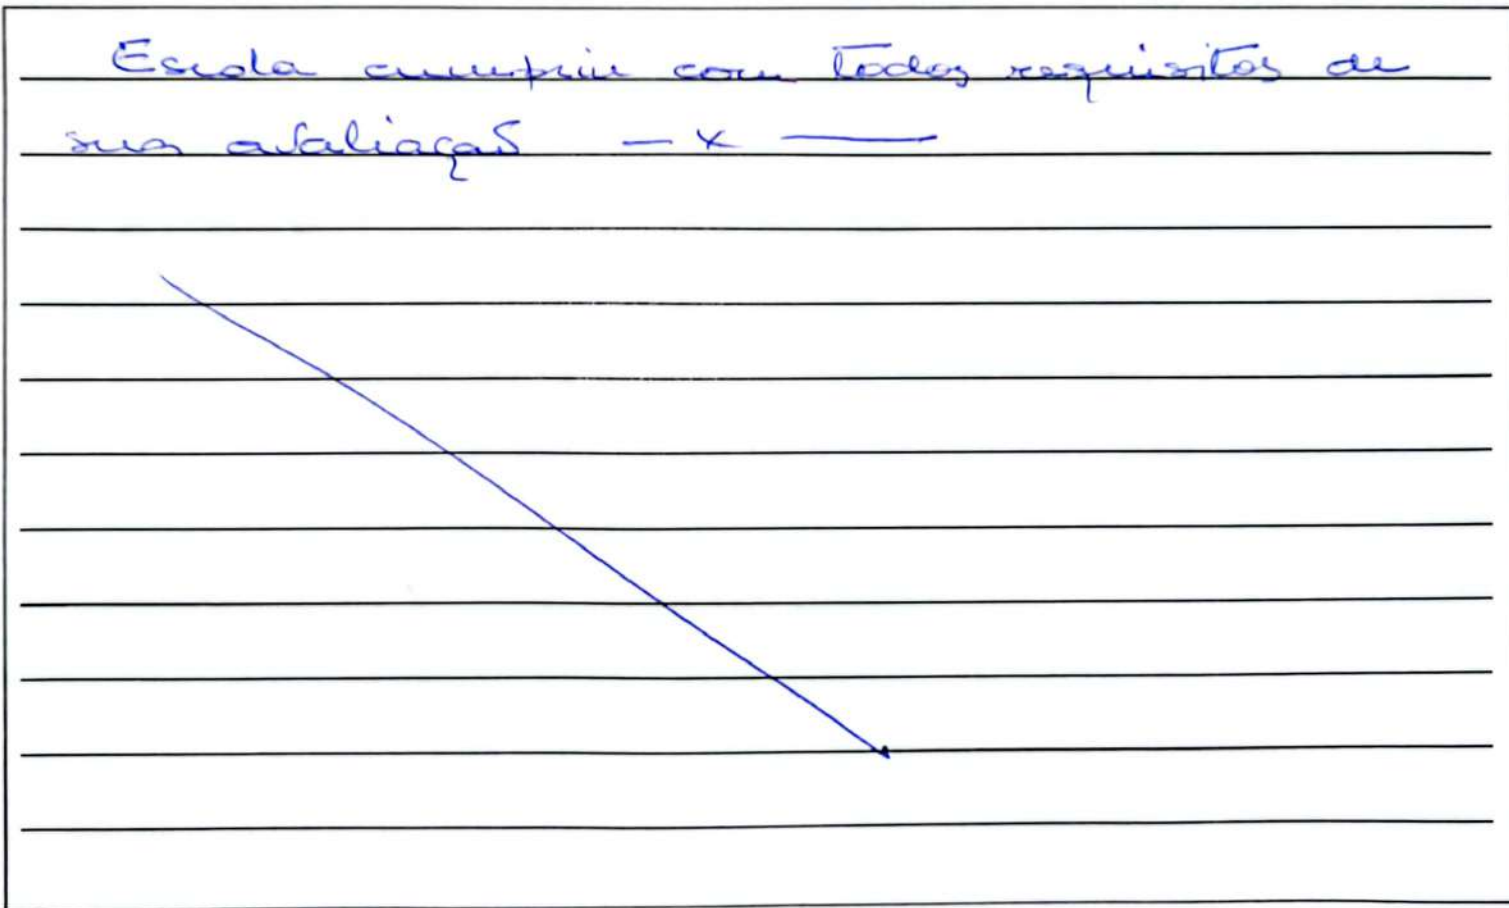 Escola cumpriu com todos requisitos de
sua avaliação — x —